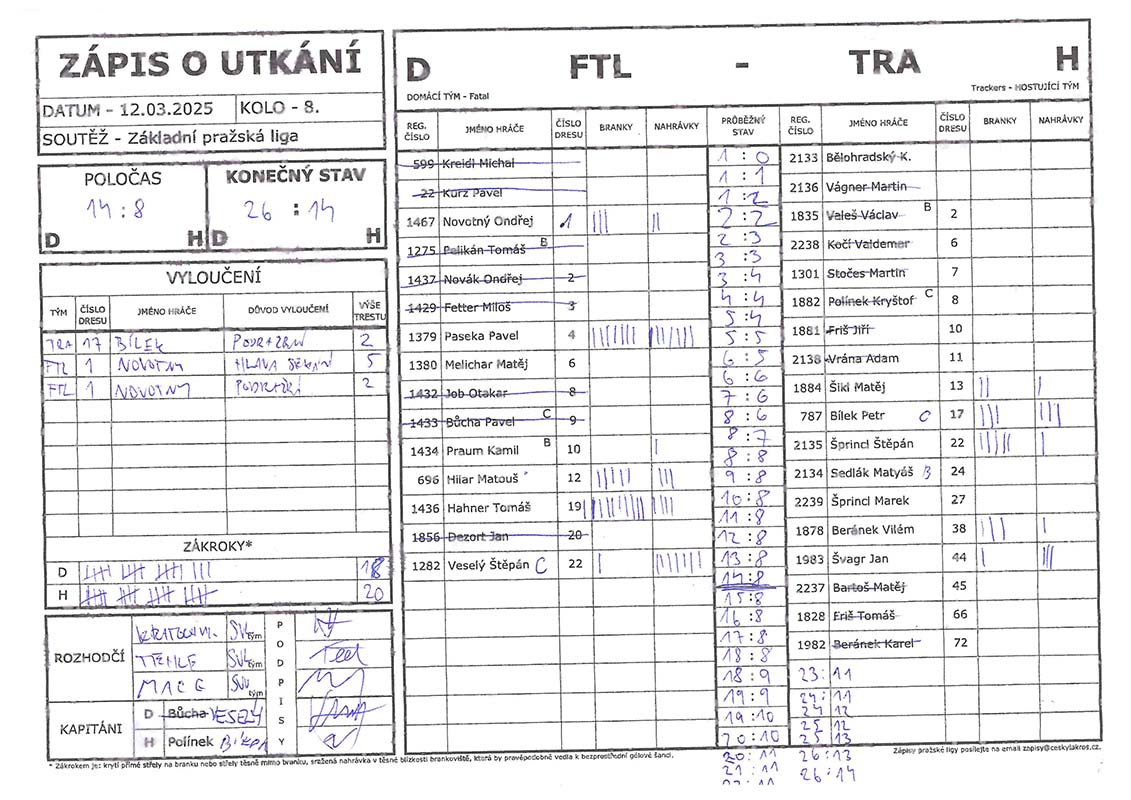 ZÁPIS O UTKÁNÍ
DATUM - 12.03.2025 KOLO - 8.
SOUTĚŽ - Základní pražská liga
POLOČAS KONEČNÝ STAV
14 : 8 26 : 14
D H D H
VYLOUČENÍ
TÝM ČÍSLO DRESU JMÉNO HRÁČE DŮVOD VYLOUČENÍ VÝŠE TRESTU
TRA 17 BÍLEK PODRAŽENÍ 2
FTL 1 NOVOTNÝ HLAVA SEKÁNÍ 5
FTL 1 NOVOTNÝ PODRAŽENÍ 2
ZÁKROKY*
D 18
H 20
ROZHODČÍ
TÝM
TÝM
TÝM
PODPISY
KAPITÁNI
D Bůcha VESELÝ
H Polínek
D FTL - TRA H
DOMÁCÍ TÝM - Fatal Trackers - HOSTUJÍCÍ TÝM
REG. ČÍSLO JMÉNO HRÁČE ČÍSLO DRESU BRANKY NAHRÁVKY PRŮBĚŽNÝ STAV REG. ČÍSLO JMÉNO HRÁČE ČÍSLO DRESU BRANKY NAHRÁVKY
599 Kreidl Michal
22 Kurz Pavel
1467 Novotný Ondřej 1 ||| ||
1275 Pelikán Tomáš B
1437 Novák Ondřej 2
1429 Fetter Miloš 3
1379 Paseka Pavel 4
1380 Melichar Matěj 6
1432 Job Otakar 8
1433 Bůcha Pavel C 9
1434 Praum Kamil B 10 |
696 Hilar Matouš 12
1436 Hahner Tomáš 19
1856 Dezort Jan 20
1282 Veselý Štěpán C 22
1 : 0
1 : 1
1 : 2
2 : 2
2 : 3
3 : 3
3 : 4
4 : 4
5 : 4
5 : 5
6 : 5
6 : 6
7 : 6
8 : 6
8 : 7
8 : 8
9 : 8
10 : 8
11 : 8
12 : 8
13 : 8
14 : 8
15 : 8
16 : 8
17 : 8
18 : 8
18 : 9
19 : 9
19 : 10
20 : 10
20 : 11
21 : 11
22 : 11
2133 Bělohradský K.
2136 Vágner Martin
1835 Valeš Václav B 2
2238 Kočí Valdemar 6
1301 Stočes Martin 7
1882 Polínek Kryštof C 8
1881 Friš Jiří 10
2138 Vrána Adam 11
1884 Šikl Matěj 13 || |
787 Bílek Petr C 17 ||| |||
2135 Šprincl Štěpán 22
2134 Sedlák Matyáš B 24
2239 Šprincl Marek 27
1878 Beránek Vilém 38 ||| |
1983 Švagr Jan 44 | |||
2237 Bartoš Matěj 45
1828 Friš Tomáš 66
1982 Beránek Karel 72
23 : 11
24 : 11
24 12
25 12
25 13
26 : 13
26 : 14
Zápisy pražské ligy posílejte na email zapisy@ceskylakros.cz.
* Zákrokem je: krytí přímé střely na branku nebo střely těsně mimo branku, sražená nahrávka v těsné blízkosti brankoviště, která by pravěpodobně vedla k bezprostřední gólové šanci.